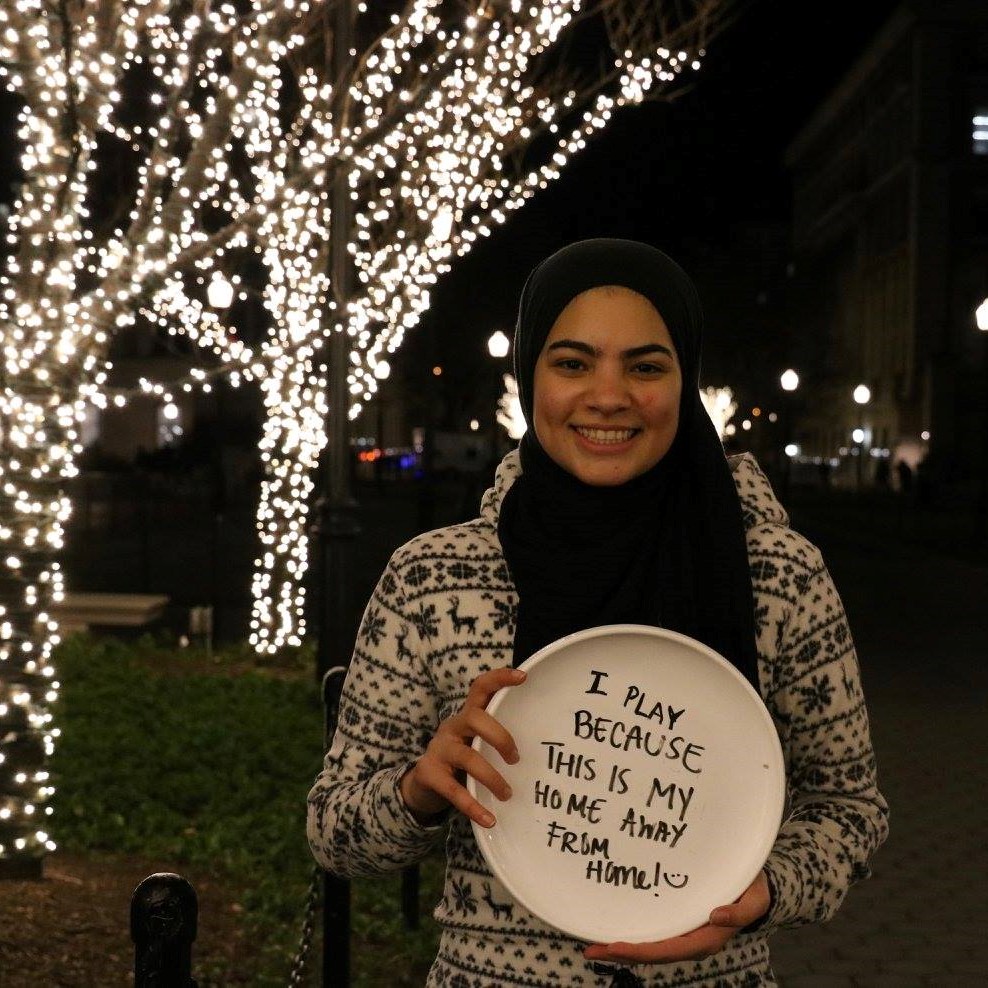 I PLAY
BECAUSE
THIS IS MY
HOME AWAY
FROM
Home! :)